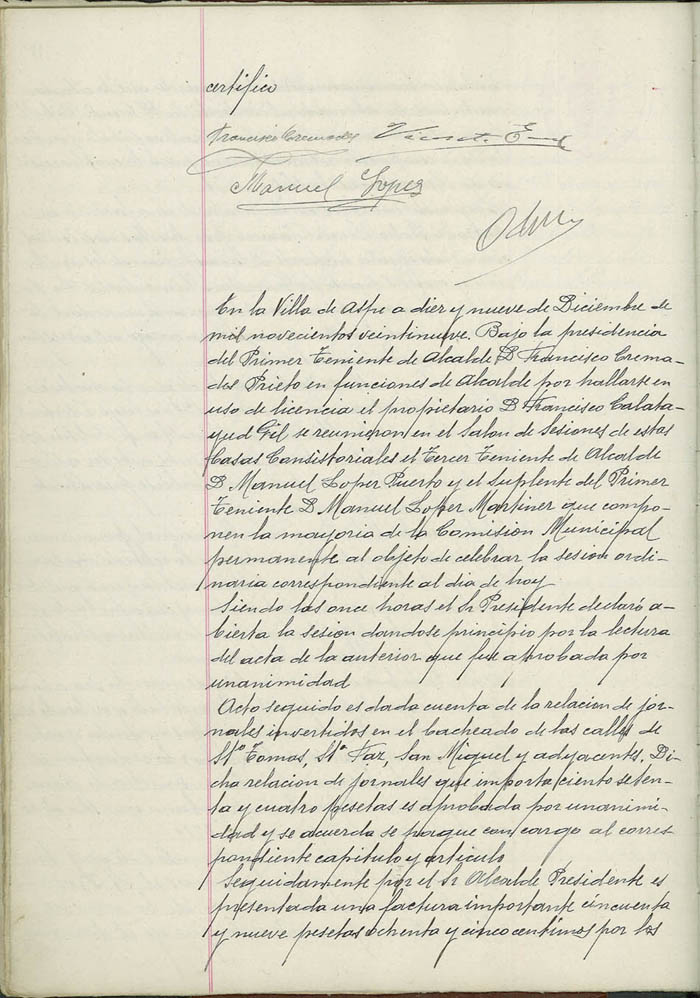 certifico
Francisco Cremades Vicente
Manuel Lopez
En la Villa de Aspe a diez y nueve de Diciembre de
mil novecientos veintinueve. Bajo la presidencia
del Primer Teniente de Alcalde D Francisco Crema-
des Prieto en funciones de Alcalde por hallarse en
uso de licencia el propietario D Francisco Calata-
yud Gil se reunieron en el Salon de Sesiones de estas
Casas Consistoriales el Tercer Teniente de Alcalde
D Manuel Lopez Puerto y el suplente del Primer
Teniente D Manuel Lopez Martinez que compo-
nen la mayoria de la Comision Municipal
permanente al objeto de celebrar la sesion ordi-
naria correspondiente al dia de hoy
Siendo las once horas el Sr Presidente declaró a-
bierta la sesion dandose principio por la lectura
del acta de la anterior que fue aprobada por
unanimidad
Acto seguido es dada cuenta de la relacion de jor-
nales invertidos en el bacheado de las calles de
Stº Tomas, Stª Faz, San Miguel y adyacentes. Di-
cha relacion de jornales que importa ciento seten-
ta y cuatro pesetas es aprobada por unanimi-
dad y se acuerda se pague con cargo al corres
pondiente capitulo y articulo
Seguidamente por el Sr Alcalde Presidente es
presentada una factura importante cincuenta
y nueve pesetas ochenta y cinco centimos por los